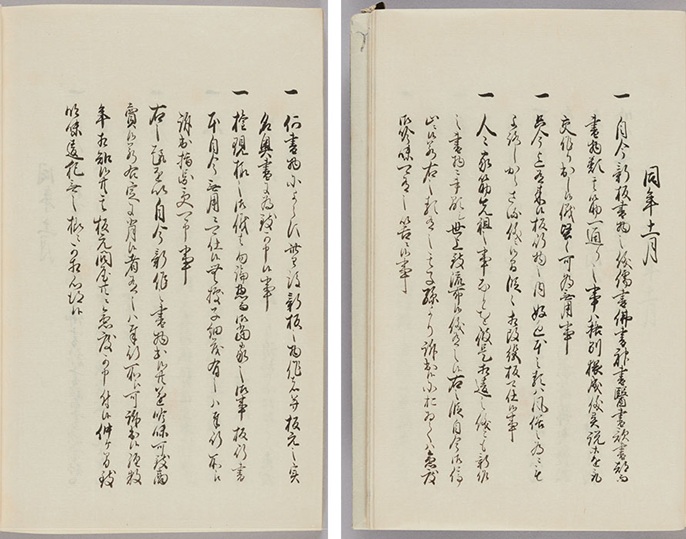 同年十一月
一 自今新板書物之儀儒書佛書神書醫書歌書都而
書物類其筋一通り之事ハ格別猥成儀異説等を取
交作り出し候儀堅可為無用事
一 只今迄有来候板行物之内好色本之類ハ風俗之為ニも
よろしからさる儀ニ候間段々相改絶板可仕候事
一 人々家筋先祖之事なとを彼是相違之儀とも新作
之書物ニ書顕し世上致流布候儀有之候右之段自今御停
止ニ候若右之類有之其子孫より訴出候ニおゐてハ急度
御吟味可有之筈候事
一 何書物ニよらす此以後新板之物作者并板元之実
名奥書ニ為致可申候事
一 権現様之御儀ハ勿論惣而御當家之御事板行書
本自今無用ニ可仕候無據子細有之ハ奉行所江
訴出指図受可申事
右之趣を以自今新作之書物出候共遂吟味可致商
賣候若右定ニ背候者有之ハ奉行所江可訴出候経数
年相知候共其板元問屋共ニ急度可申付候仲ヶ間致
吟味違犯無之様ニ可相心得候